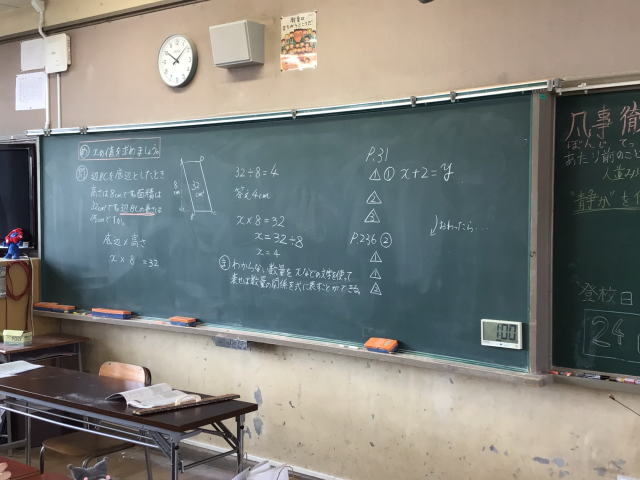 め xの値を求めましょう。
問 辺BCを底辺としたとき
高さは8cmでも面積は
32cm²でも辺BCの長さは
底辺×高さ
x × 8 = 32
8
cm
32
32÷8=4
答え4cm
x × 8 = 32
x = 32÷8
x = 4
ま わからない数量をxなどの文字を使って
表せば数量の関係を式に表すことができる
P.31
1 ① x+2=y
2
3
P.236 ②
1
2
おわったら…
100
凡事徹
ぼんじ てっ
あたり前のこと
"静か"を
登校日
24日